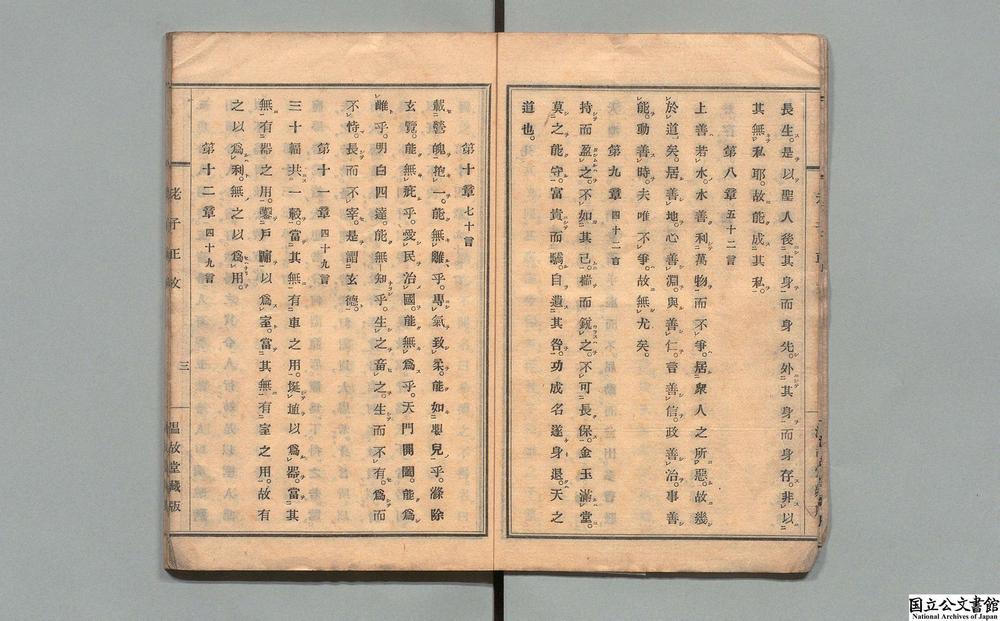 長生。是以聖人後其身而身先。外其身而身存。非以
其無私耶。故能成其私。
第八章五十二言
上善若水。水善利萬物而不爭。居衆人之所惡。故幾
於道矣。居善地。心善淵。與善仁。言善信。政善治。事善
能。動善時。夫唯不爭。故無尤矣。
第九章四十二言
持而盈之。不如其已。揣而鋭之。不可長保。金玉滿堂。
莫之能守。富貴而驕。自遺其咎。功成名遂身退。天之
道也。
第十章七十言
載營魄抱一。能無離乎。專氣致柔。能如嬰兒乎。滌除
玄覽。能無疵乎。愛民治國。能無爲乎。天門開闔。能爲
雌乎。明白四達。能無知乎。生之畜之。生而不有。爲而
不恃。長而不宰。是謂玄德。
第十一章四十九言
三十輻共一轂。當其無有車之用。埏埴以爲器。當其
無有器之用。鑿戶牖以爲室。當其無有室之用。故有
之以爲利。無之以爲用。
第十二章四十九言
老子正文
三
温故堂藏版
国立公文書館
National Archives of Japan